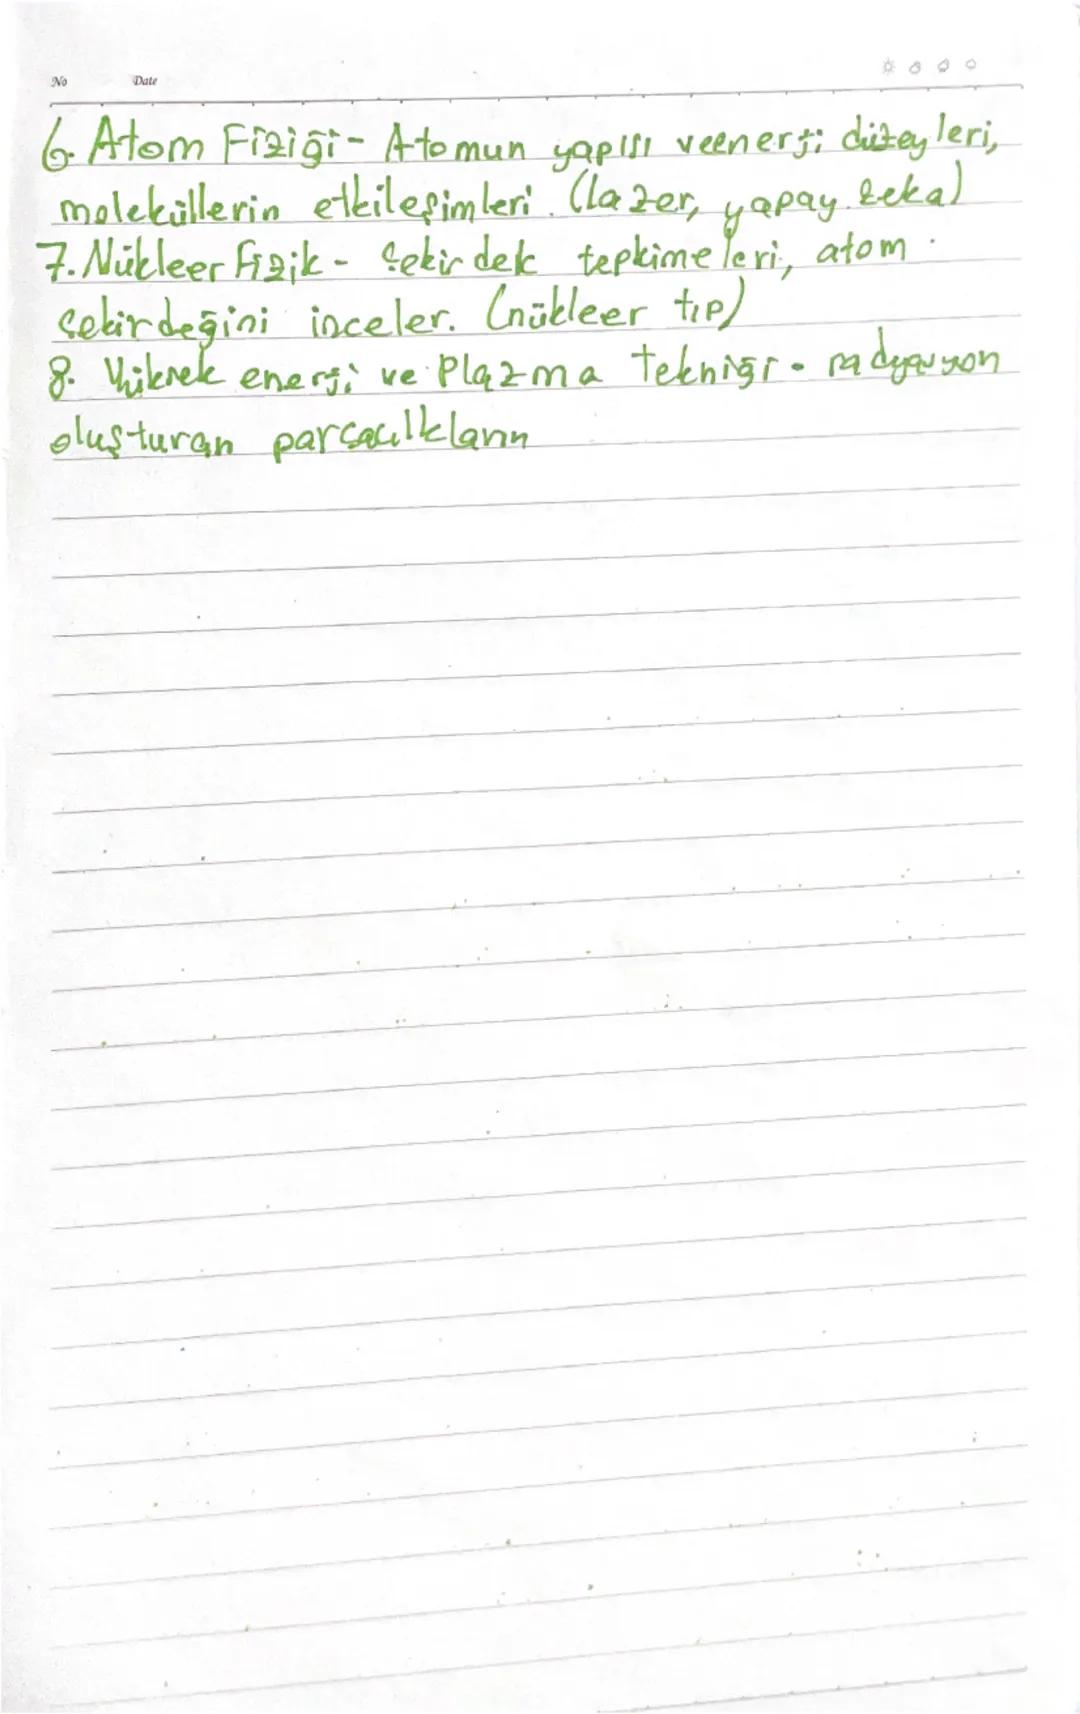 No Date
6. Atom Fiziği - Atomun yapısı ve enerji düzeyleri,
moleküllerin etkileşimleri. (lazer, yapay zeka)
7. Nükleer fizik - Çekirdek tepkimeleri, atom
çekirdeğini inceler. (nükleer tıp)
8. Yüksek enerji ve Plazma Tekniği - radyasyon
oluşturan parçacıkların